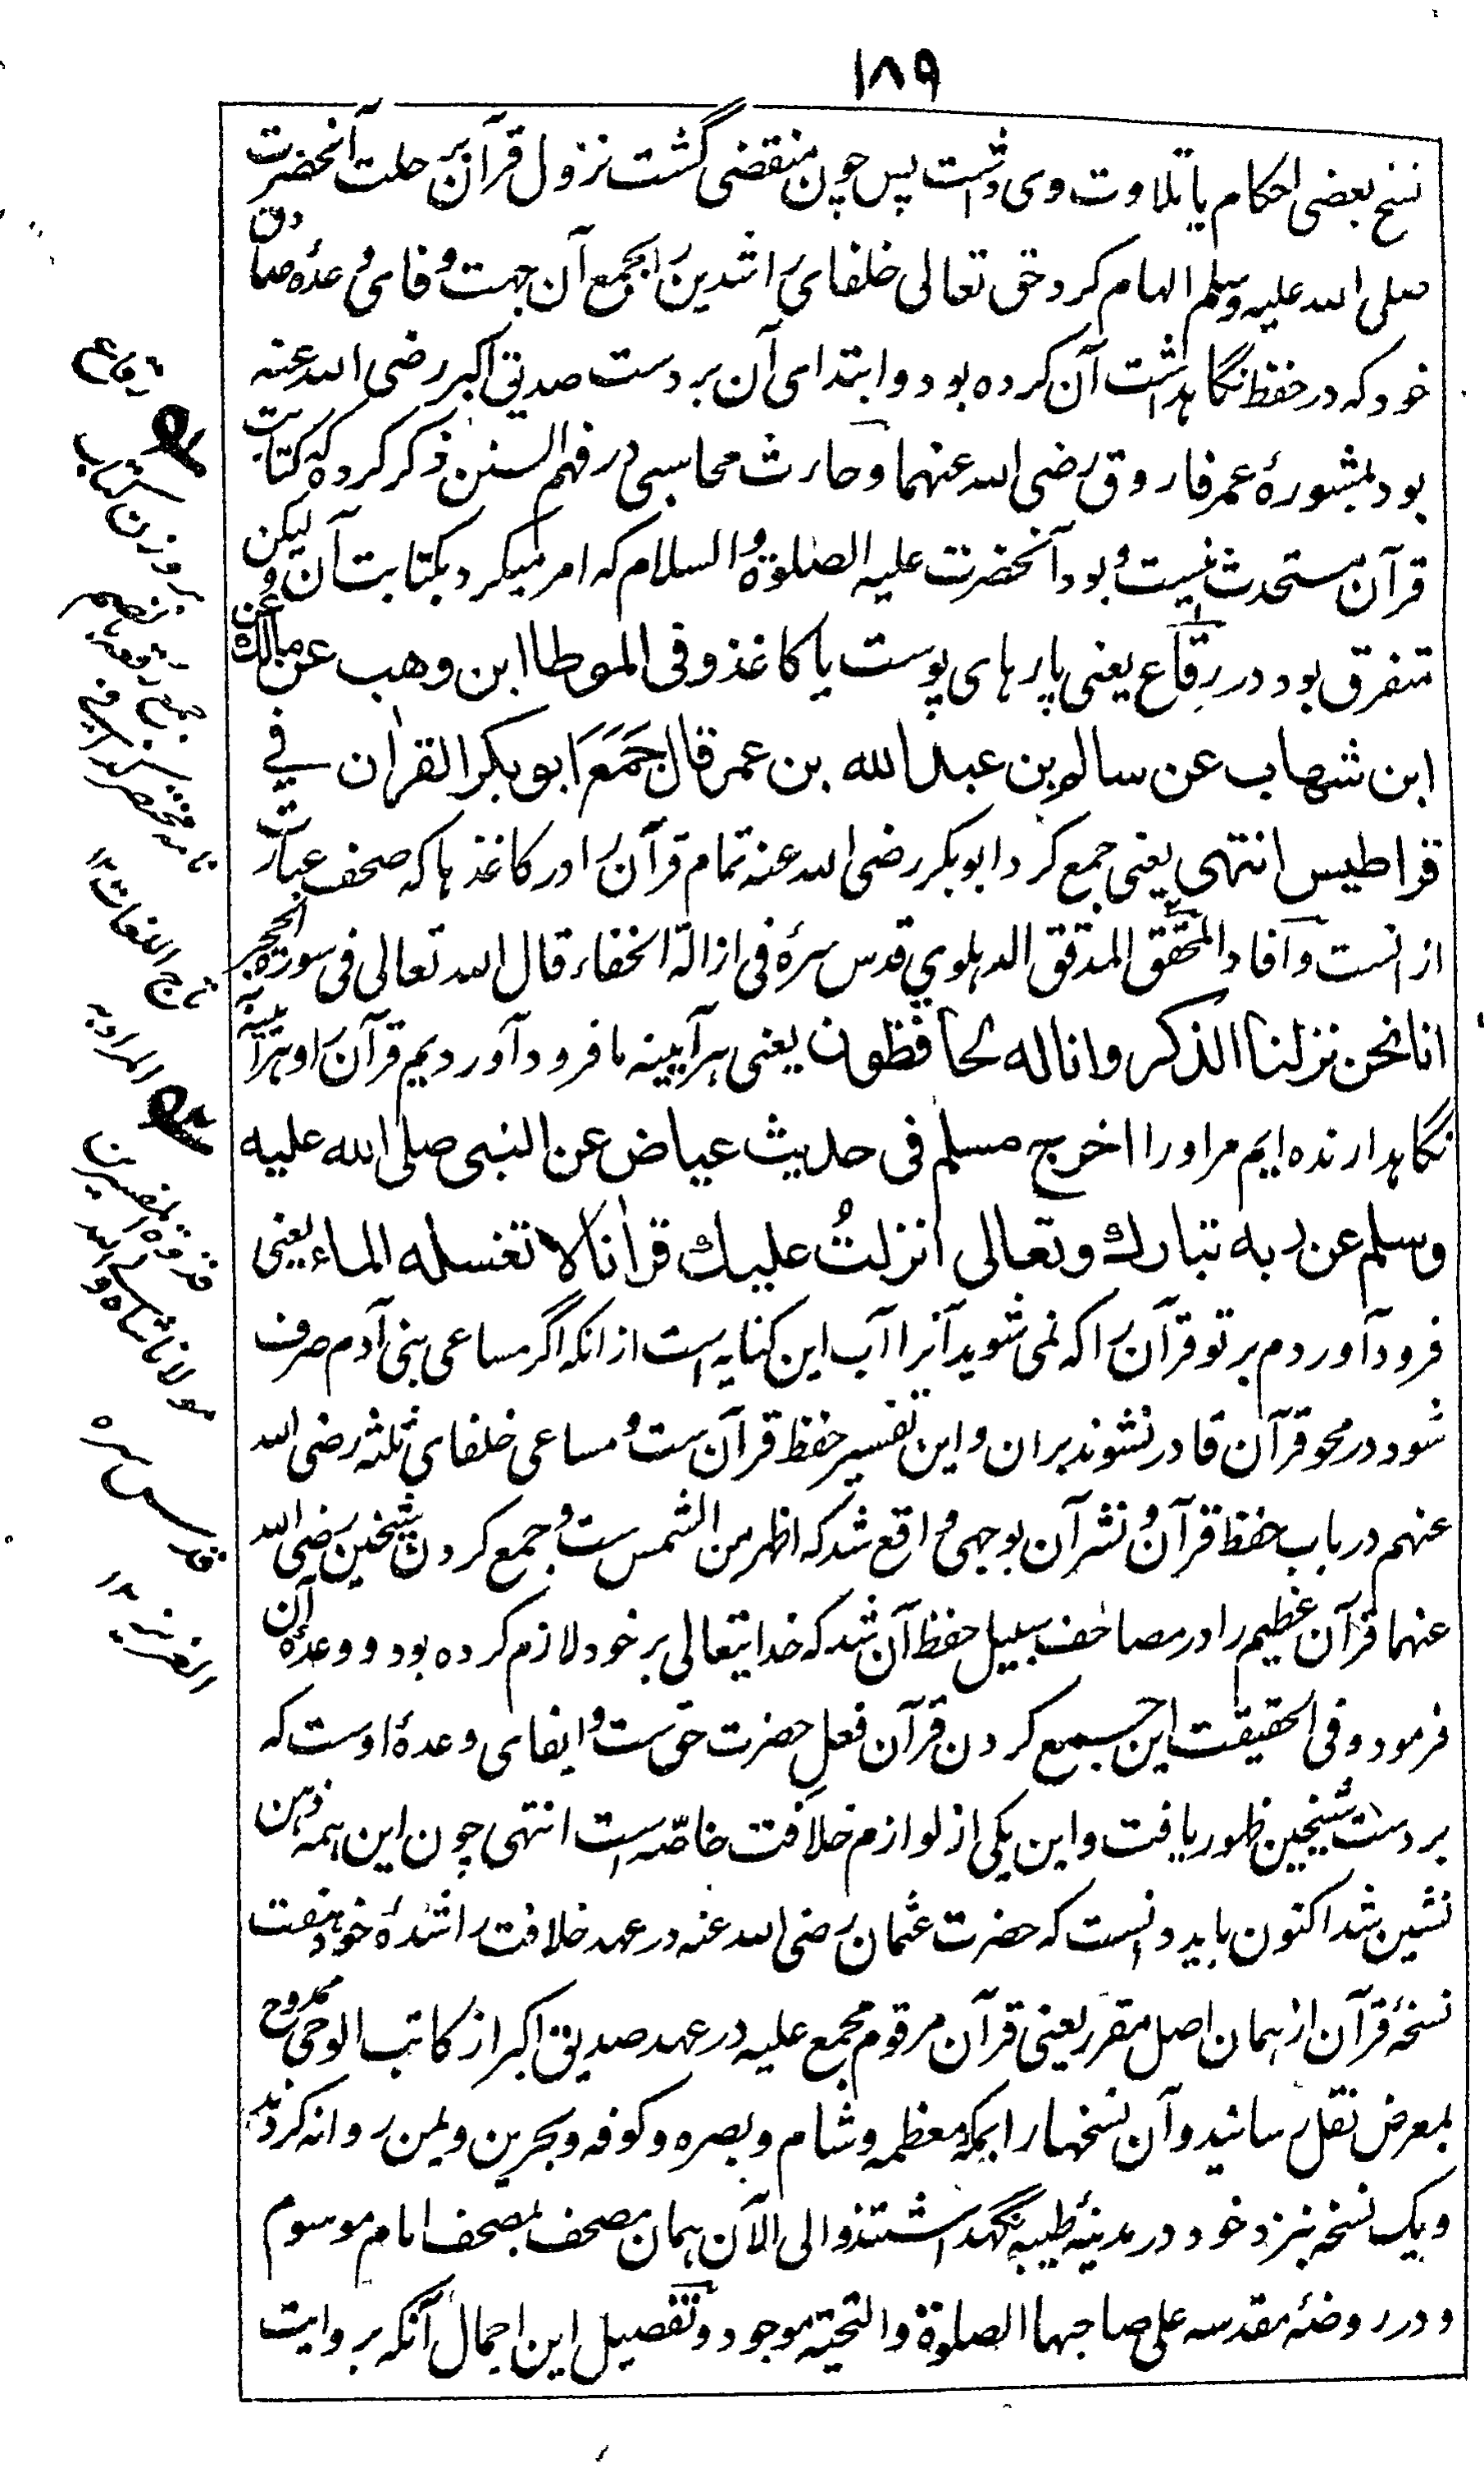 ۱۸۹
نسخ بعضی احکام یا تلاوت وی داشت پس چون منقضی گشت نزول قرآن برحلت آنحضرت
صلی الله علیه وسلم الهام کرد حق تعالی خلفای راشدین را بجمع آن جهت وفای وعدهٔ صادق
خود که در حفظ نگاهداشت آن کرده بود و ابتدای آن بر دست صدیق اکبر رضی الله عنه
بود بمشورهٔ عمر فاروق رضی الله عنهما و حارث محاسبی در فهم السنن ذکر کرده که کتابت
قرآن مستحدث نیست و بود آنحضرت علیه الصلوة والسلام که امر میکرد بکتابت آن ولیکن
متفرق بود در رِقاع یعنی پارهای پوست یا کاغذ و فی الموطا ابن وهب عن مالک عن
ابن شهاب عن سالم بن عبد الله بن عمر قال جَمَعَ ابو بکر القران في
قراطیس انتهی یعنی جمع کرد ابوبکر رضی الله عنه تمام قرآن را در کاغذها که صحف عبارت
از انست و آفاد المحقق المدقق الدهلوي قدس سرهٔ فی ازالة الخفاء قال الله تعالی فی سورة الحجر
انا نحن نزلنا الذکر وانا له لحافظون یعنی هرآیینه ما فرود آوردیم قرآن را و هرآیینه
نگاهدارنده ایم مر او را اخرج مسلم فی حدیث عیاض عن النبی صلی الله علیه
وسلم عن ربه تبارک وتعالی انزلتُ علیک قرانا لا تغسله الماء یعنی
فرود آوردم بر تو قرآن را که نمی شوید آنرا آب این کنایه است از انکه اگر مساعی بنی آدم صرف
شود در محو قرآن قادر نشوند بران و این تفسیر حفظ قرآن ست و مساعی خلفای ثلثه رضی الله
عنهم در باب حفظ قرآن و نشر آن بوجهی واقع شد که اظهر من الشمس ست و جمع کردن شیخین رضی الله
عنهما قرآن عظیم را در مصاحف سبیل حفظ آن شد که خدایتعالی بر خود لازم کرده بود و وعدهٔ آن
فرمود و فی الحقیقت این جمع کردن قرآن فعلِ حضرت حق ست و ایفای وعدهٔ اوست که
بر دست شیخین ظهور یافت و این یکی از لوازم خلافت خاصّه است انتهی چون این همه ذهن
نشین شد اکنون باید دانست که حضرت عثمان رضی الله عنه در عهد خلافت راشدهٔ خود هفت
نسخهٔ قرآن از همان اصل مقرر یعنی قرآن مرقوم مجمع علیه در عهد صدیق اکبر از کاتب الوحی ممدوح
بمعرض نقل رسانید و آن نسخها را بمکهٔ معظمه و شام و بصره و کوفه و بحرین و یمن روانه کردند
و یک نسخه بنزد خود در مدینهٔ طیبه نگهداشتند و الی الآن همان مصحف بمصحف امام موسوم
و در روضهٔ مقدسه علی صاحبها الصلوة والتحیته موجود و تفصیل این اجمال آنکه بروایت
رقاع
بر وزن کتاب
جمع رقعه بضم
تاج اللغات ۱۲
المراد به
قدوة المفسرین
مولانا شاه ولی الله
قدس سره
العزیز ۱۲